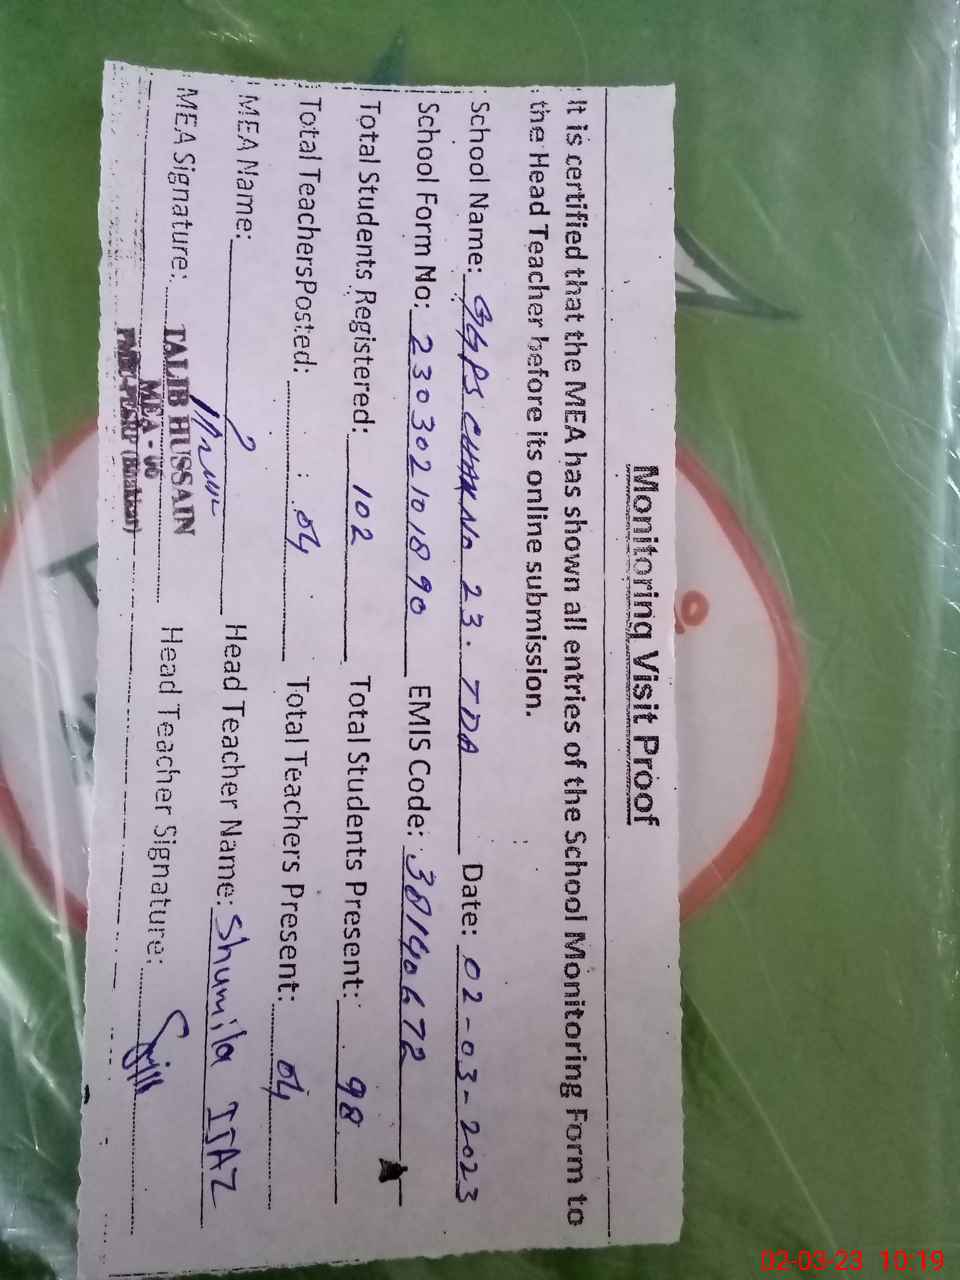 Monitoring Visit Proof
It is certified that the MEA has shown all entries of the School Monitoring Form to
the Head Teacher before its online submission.
School Name: GGPS CHAK No 23. TDA Date: 02-03-2023
School Form No: 23030210 1890 EMIS Code: 38140672
Total Students Registered: 102 Total Students Present: 98
Total TeachersPosted: 04 Total Teachers Present: 04
MEA Name: Head Teacher Name: Shumila IJAZ
MEA Signature: Head Teacher Signature:
TALIB HUSSAIN
MEA - 06
02-03-23 10:19